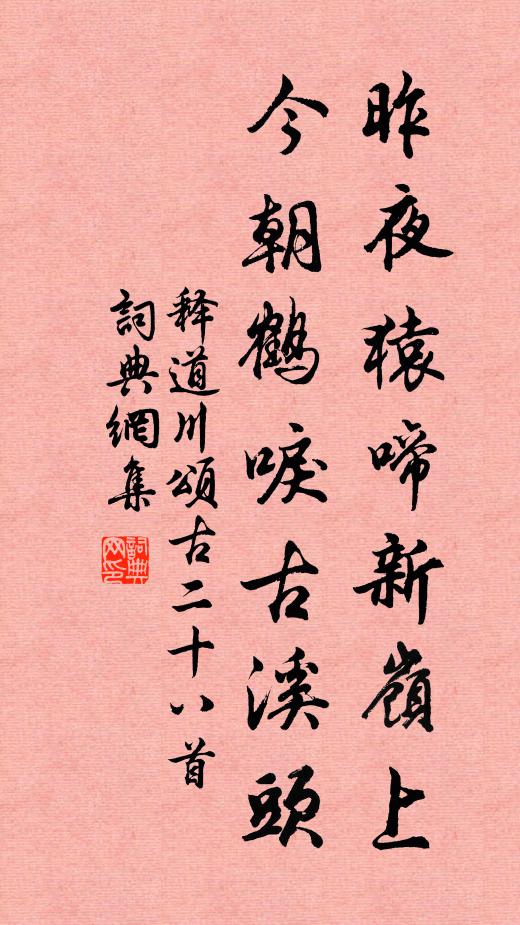 昨夜猿啼新嶺上
今朝鶴唳古溪頭
释道川頌古二十八首
詞典網集
詞典網印